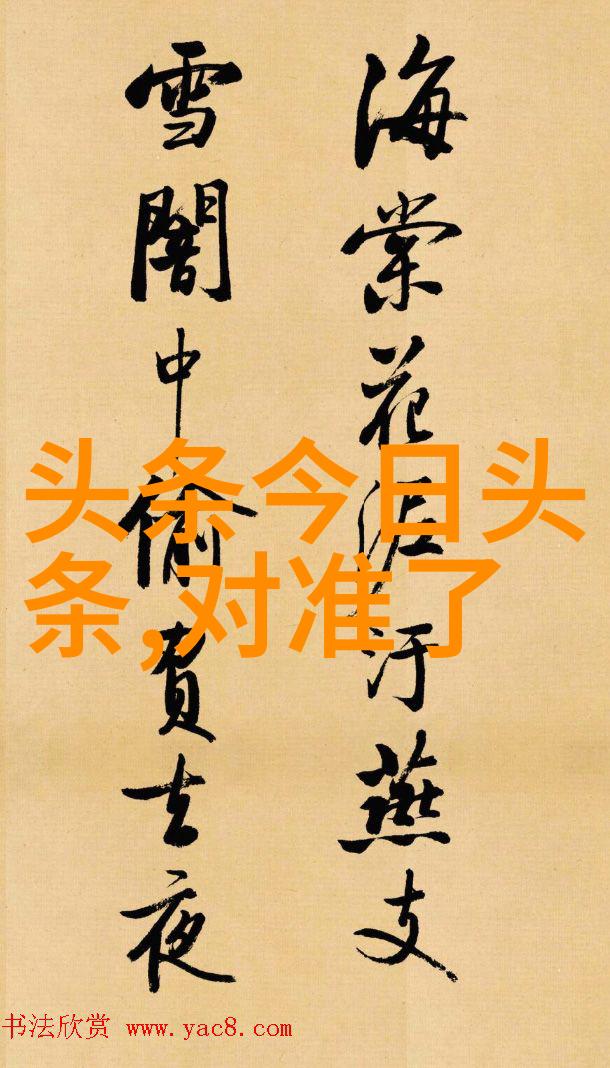 海棠花泥汙燕支
雪闇中偷負去夜
头条今日头
条,对准了
书法欣赏 www.yac8.com